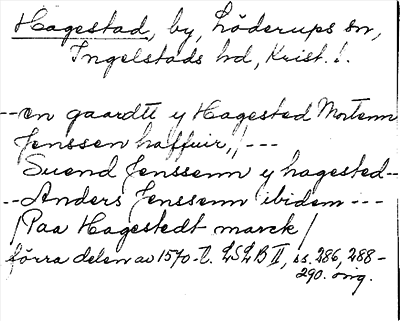 Hagestad, by, Löderups sn,
Ingelstads hd, Krist. l.
--en gaardtt y Hagested Mortenn
Jenssen haffuir,/ ---
Suend Jenssenn y hagested--
--Anders Jenssenn ibidem ---
/Paa Hagestedt marck/
förra delen av 1570-t. LSLB II, ss. 286, 288-
290. orig.